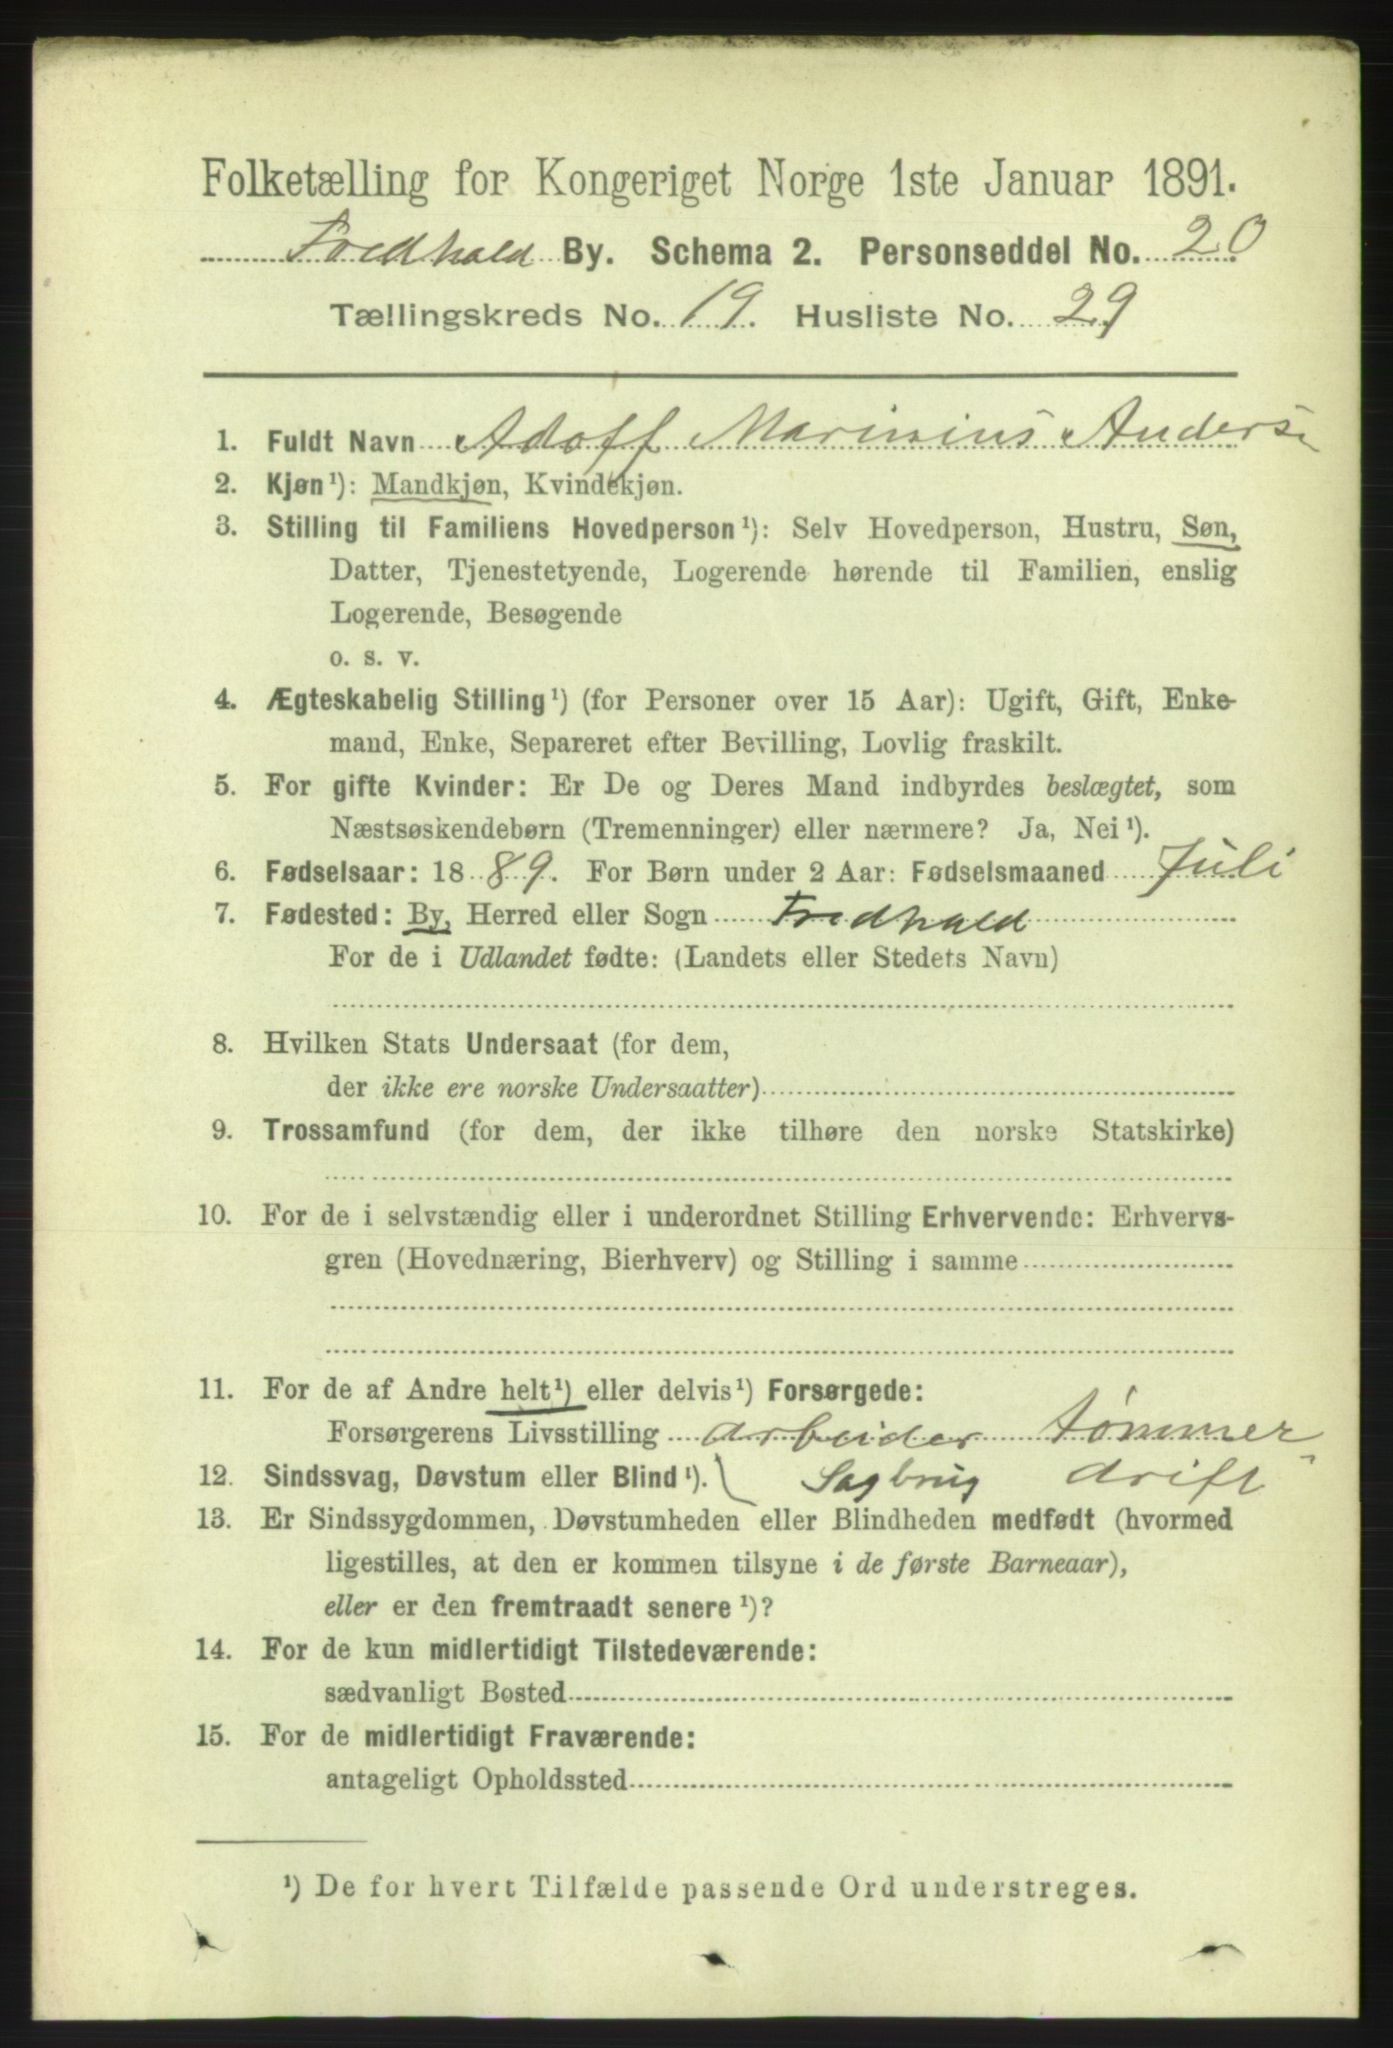 Folketælling for Kongeriget Norge 1ste Januar 1891.
Fredhald By. Schema 2. Personseddel No. 20
Tællingskreds No. 19. Husliste No. 29
1. Fuldt Navn Adolf Marinius Anders
2. Kjøn¹): Mandkjøn, Kvindekjøn.
3. Stilling til Familiens Hovedperson¹): Selv Hovedperson, Hustru, Søn,
Datter, Tjenestetyende, Logerende hørende til Familien, enslig
Logerende, Besøgende
o. s. v.
4. Ægteskabelig Stilling¹) (for Personer over 15 Aar): Ugift, Gift, Enke-
mand, Enke, Separeret efter Bevilling, Lovlig fraskilt.
5. For gifte Kvinder: Er De og Deres Mand indbyrdes beslægtet, som
Næstsøskendebørn (Tremenninger) eller nærmere? Ja, Nei¹).
6. Fødselsaar: 1889. For Børn under 2 Aar: Fødselsmaaned Juli
7. Fødested: By, Herred eller Sogn Fredhald
For de i Udlandet fødte: (Landets eller Stedets Navn)
8. Hvilken Stats Undersaat (for dem,
der ikke ere norske Undersaatter)
9. Trossamfund (for dem, der ikke tilhøre den norske Statskirke)
10. For de i selvstændig eller i underordnet Stilling Erhvervende: Erhvervs-
gren (Hovednæring, Bierhverv) og Stilling i samme
11. For de af Andre helt¹) eller delvis¹) Forsørgede:
Forsørgerens Livsstilling arbeider tømmer
12. Sindssvag, Døvstum eller Blind¹). Sagbrug drift
13. Er Sindssygdommen, Døvstumheden eller Blindheden medfødt (hvormed
ligestilles, at den er kommen tilsyne i de første Barneaar),
eller er den fremtraadt senere¹)?
14. For de kun midlertidigt Tilstedeværende:
sædvanligt Bosted
15. For de midlertidigt Fraværende:
antageligt Opholdssted
¹) De for hvert Tilfælde passende Ord understreges.